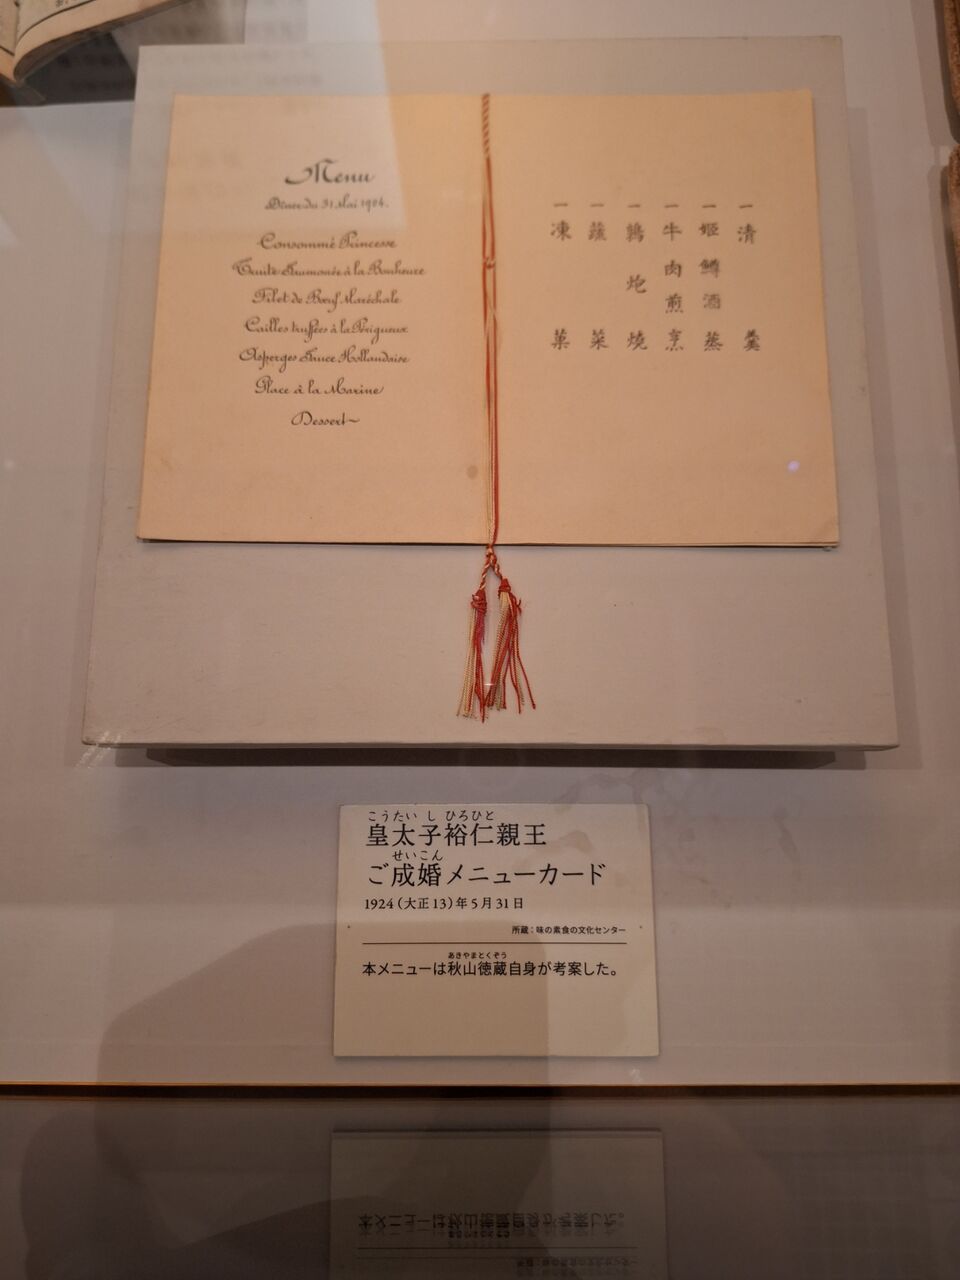 Menu
Dîner du 31 Mai 1924.
Consommé Princesse
Truite Saumonée à la Bonheure
Filet de Bœuf Maréchale
Cailles truffées à la Périgueux
Asperges Sauce Hollandaise
Glace à la Maxine
Dessert
一 清羹
一 姫鱒酒蒸
一 牛肉煎烹
一 鶉炮燒
一 蔬菜
一 凍菓
こうたい し ひろひと
皇太子裕仁親王
せいこん
ご成婚メニューカード
1924(大正13)年5月31日
所蔵:味の素食の文化センター
あきやまとくぞう
本メニューは秋山徳蔵自身が考案した。